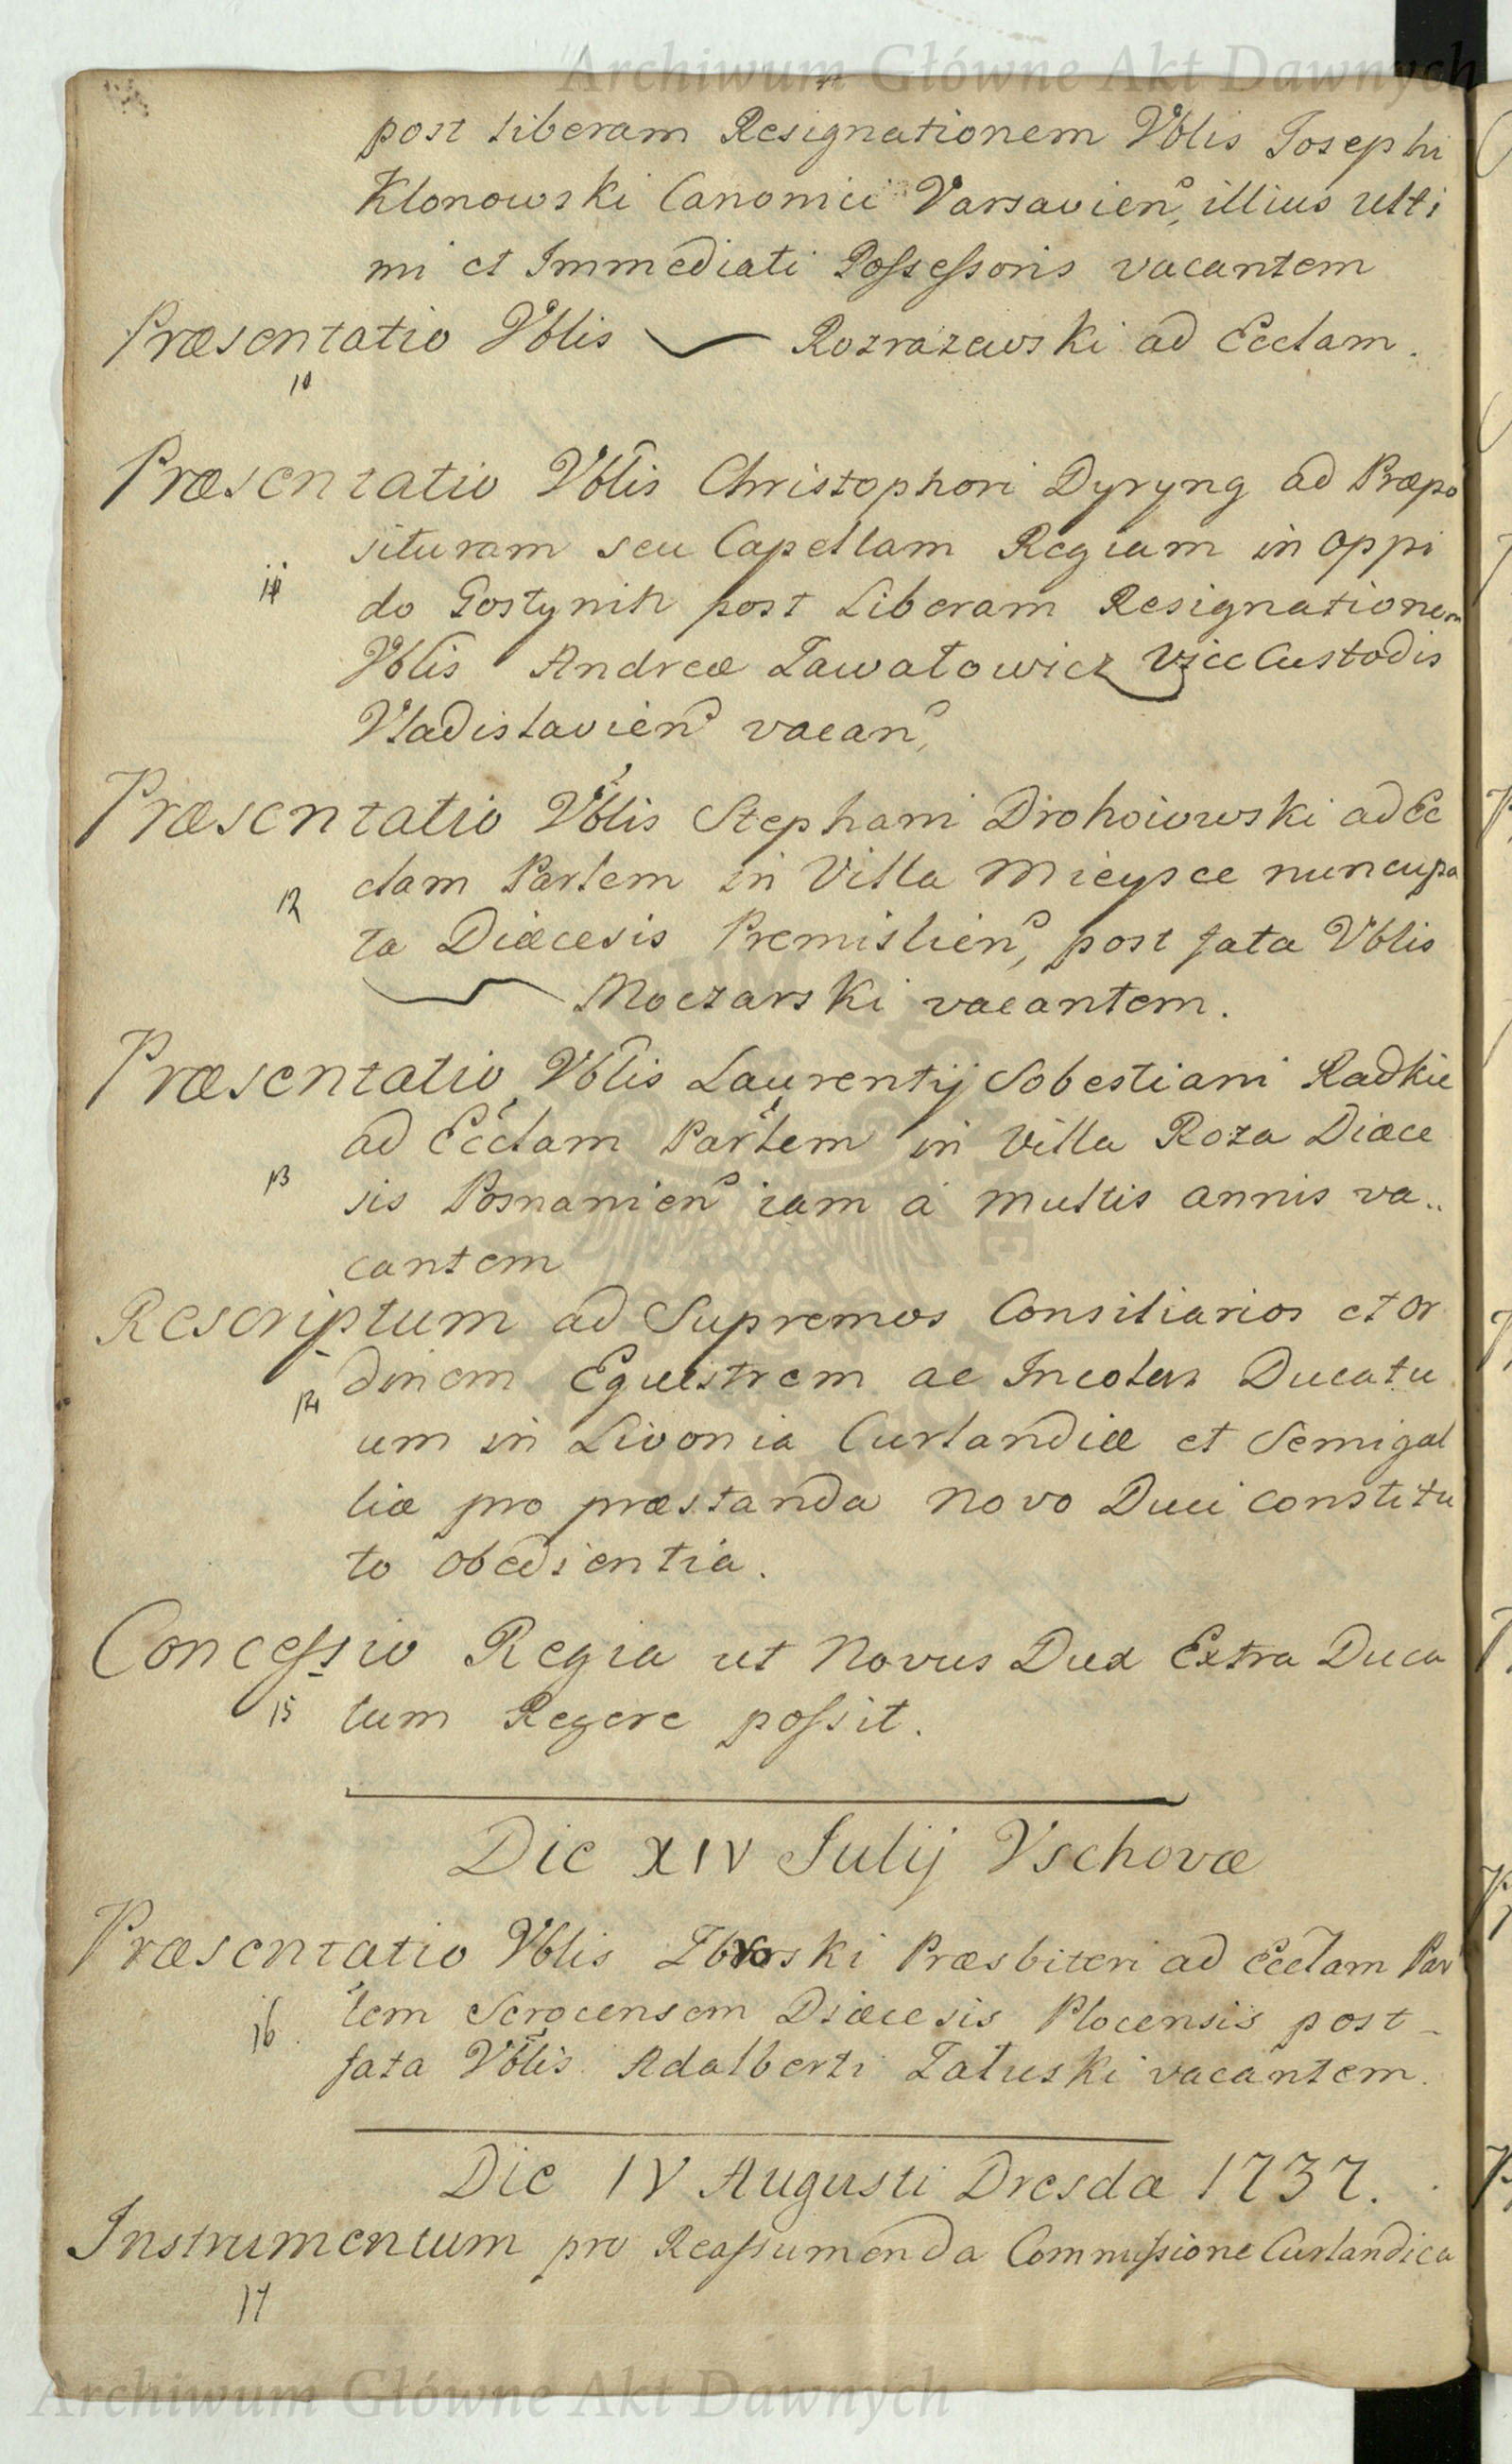 Archiwum Główne Akt Dawnych
post liberam Resignationem Vblis Josephi
Klonowski Canonici Varsavien, illius ulti
mi et Immediati Possessoris vacantem
Præsentatio Vblis Rozrazewski ad Ecclam.
10
Præsentatio Vblis Christophori Dyryng ad Præpo
situram seu Capellam Regiam in oppi
11
do Gostynin post Liberam Resignationem
Vblis Andreæ Zawatowicz ViceCustodis
Vladislavien vacan,
Præsentatio Vblis Stephani Drohoiowski ad Ec
clam Partem in Villa Mieysce nuncupa
12
ta Diæcesis Premislien, post fata Vblis
Moczarski vacantem.
Præsentatio Vblis Laurentij Sobestiani Radkie
ad Ecclam Partem in Villa Roza Diæce
13
sis Posnanien iam a multis annis va..
cantem
Rescriptum ad Supremos Consiliarios et Or
dinem Equestrem ac Incolas Ducatu
14
um in Livonia Curlandiæ et Semigal
liæ pro præstanda novo Duci constitu
to obedientia.
Concessio Regia ut Novus Dux Extra Duca
15
tum Regere possit.
Die XIV Julij Vschovæ
Præsentatio Vblis Præsbiteri ad Ecclam Par
tem Serocensem Diæcesis Plocensis post
16
fata Vblis Adalberti Załuski vacantem.
Die IV Augusti Dresdæ 1737.
Instrumentum pro Reassumenda Commissione Curlandica
17
Archiwum Główne Akt Dawnych